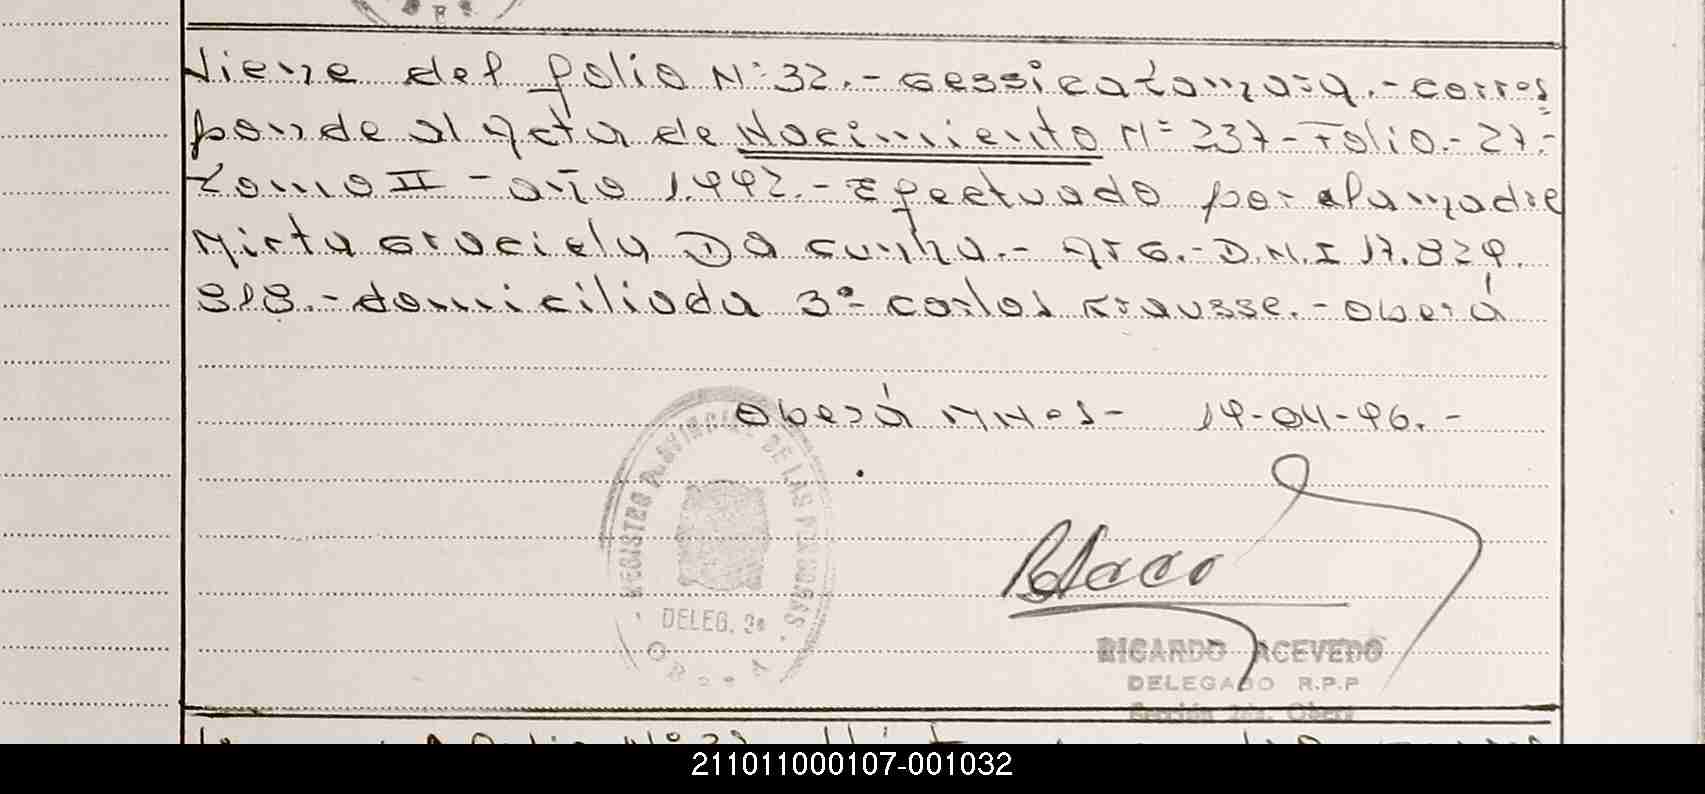 Viene del folio N: 32.- Gessica tamara.- corres
ponde al Acta de Nacimiento N= 237 - Folio.- 27.-
Tomo II - año 1.992.- Efectuado por a la madre
Mirta Graciela Da Cunha.- Arg.- D.N.I 17.829.
818.- domiciliada 3º carlos Krausse.- Oberá
Oberá Mnes- 19-04-96.-
REGISTRO PROVINCIAL DE LAS PERSONAS
DELEG. 2a
RICARDO ACEVEDO
DELEGADO R.P.P
Sección 2da. Oberá
211011000107-001032